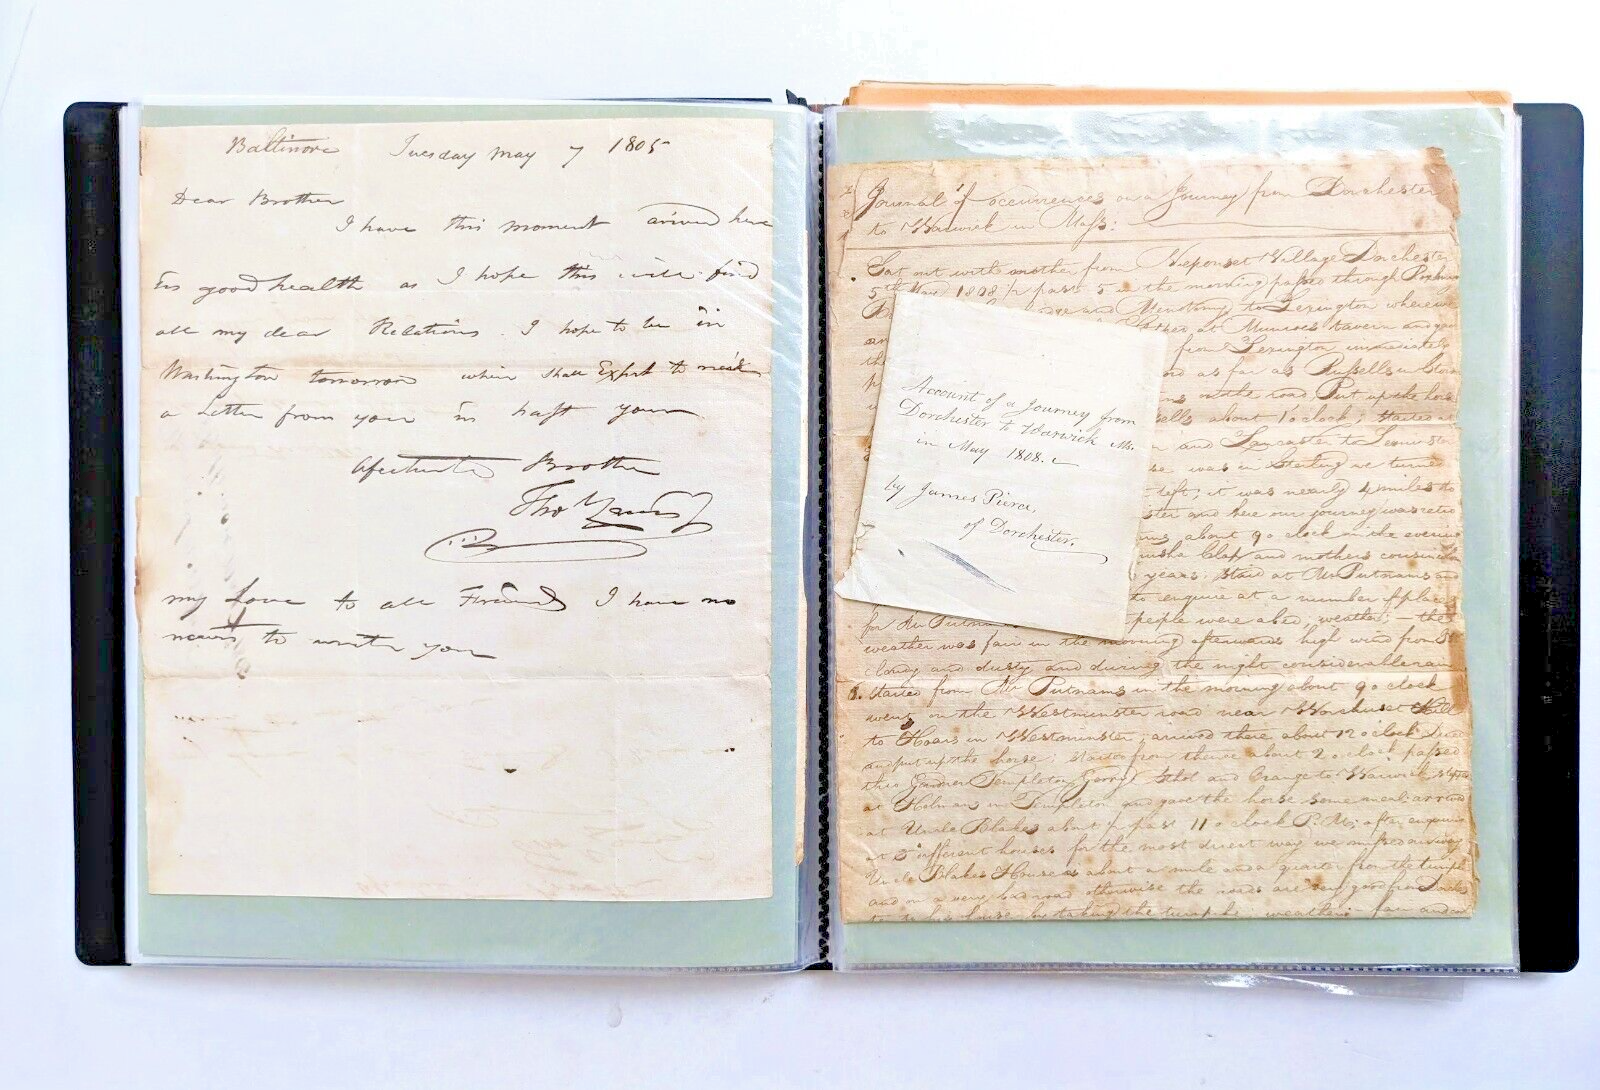 Baltimore Tuesday May 7 1805
Dear Brother
I have this moment arived here
in good health as I hope this will find
all my dear Relations. I hope to be in
Washington tomorrow where shall Expect to
a Letter from you in hast your
Afectunate Brother
Tho
my Love to all Friends I have no
to write you
Journal of occurrences on a Journey from Dorchester
to Warwick in Maſs:
Sat out with mother from Neponset Village Dorchester
5th May 1808 ½ past 5 in the morning passed through Roxbury
and Menotomy to Lexington where we
at Munroes tavern and gave
from Lexington immediately
as far as Ruſsells in
on the road Put up the horse
about 1 o clock; started at
and Lancaster to Leominster
was in Sterling we turned
left; it was nearly 4 miles to
and here our journey was
about 9 o clock in the evening
Clap and mothers cousin
years. Staid at Mr Putnams and
to enquire at a number of places
for Mr Putnams people were abed, weather; – the
weather was fair in the morning afterwards high wind from S
cloudy and dusty and during the night considerable rain
started from Mr Putnams in the morning about 9 o clock
went on the Westminster road near Wachuset Hill
to Hoars in Westminster; arrived there about 12 o clock
and put up the horse; started from thence about 2 o clock passed
thro Gardner Templeton Gerry Athol and Orange to Warwick
at Holman in Templeton and gave the horse some meal; arrived
at Uncle Blakes about ½ past 11 o clock P.M; after enquiring
at 3 different houses for the most direct way we
Uncle Blakes House is about a mile and a quarter from the
and on a very bad road otherwise the roads are very good from
to his house by taking the weather fair and
Account of a Journey from
Dorchester to Warwick Ms.
in May 1808.
by James Pierce,
of Dorchester.